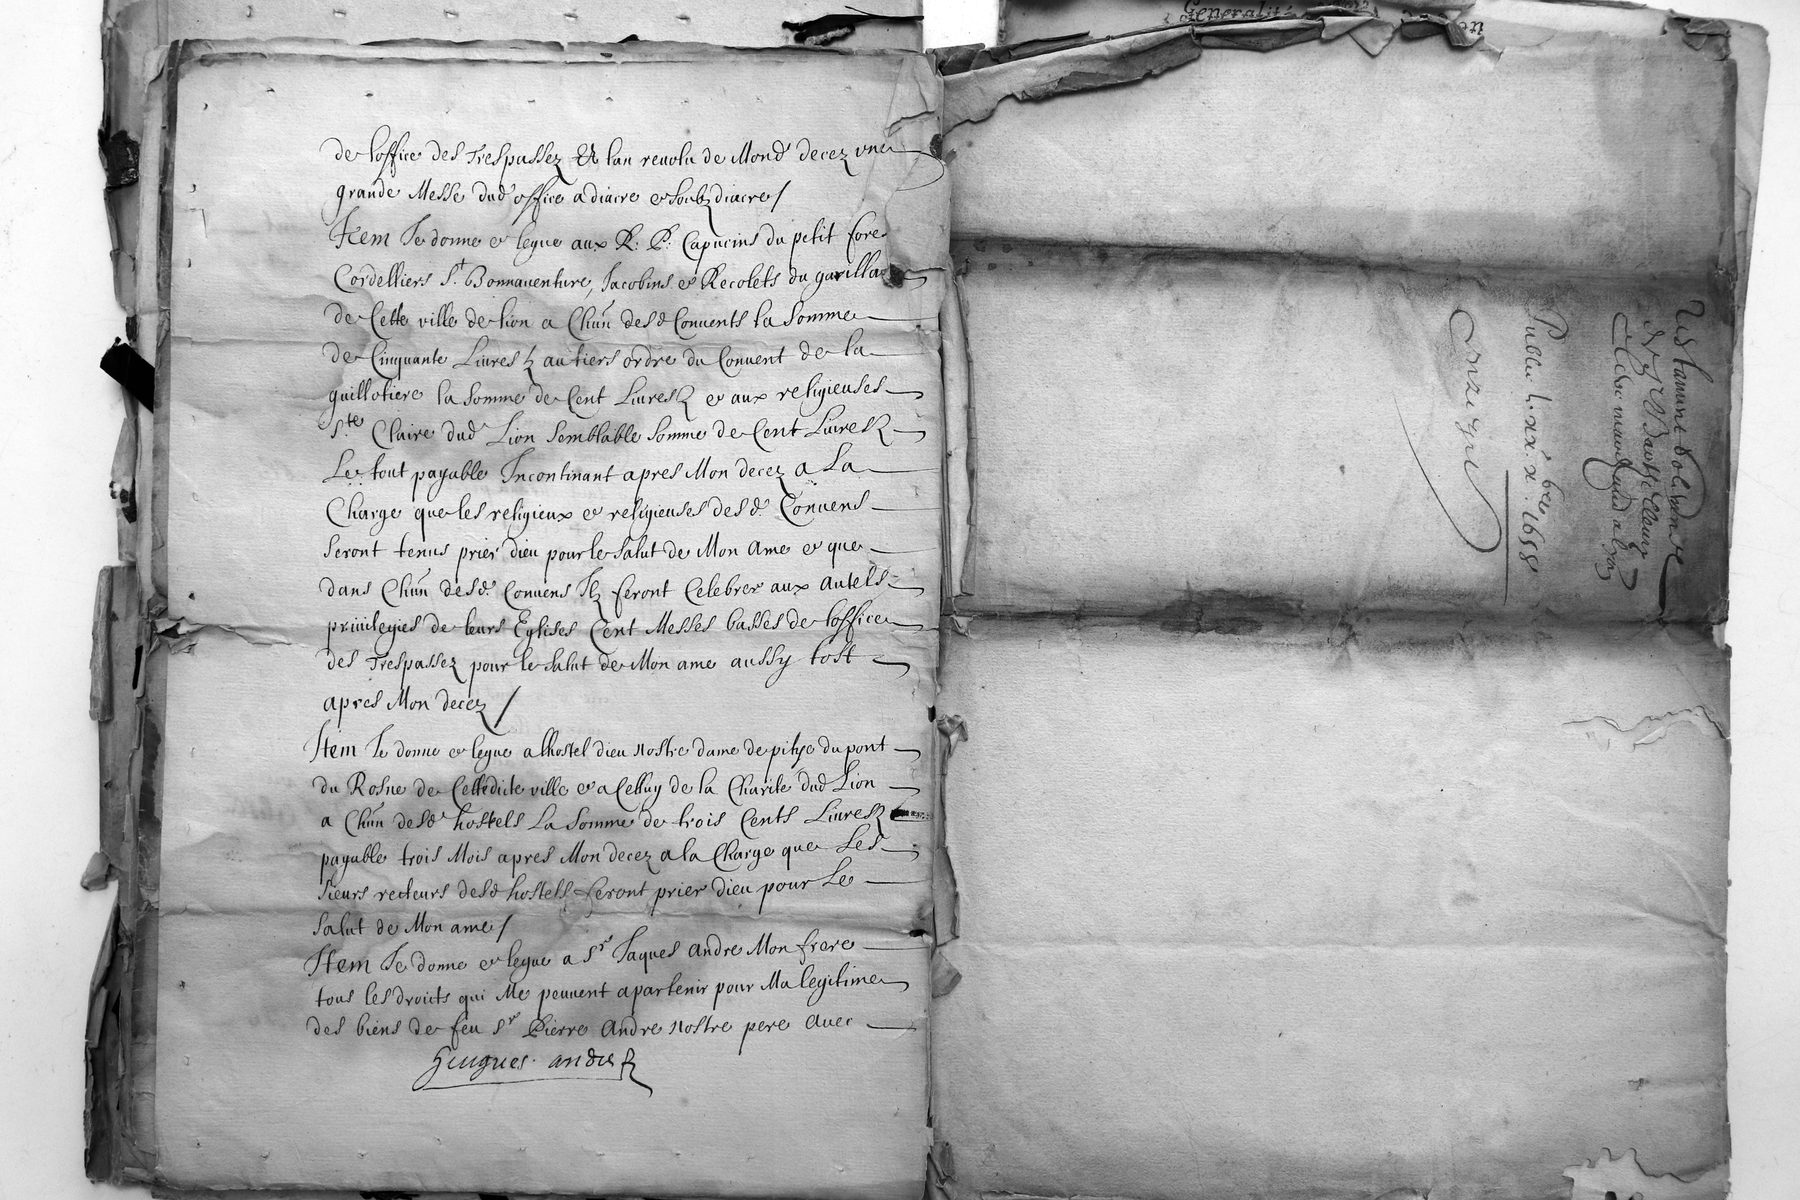 de loffice des trespassez Et lan reuolu de Mond decez vne
grande Messe dud office a diacre et soubz diacre /
Item Je donne et legue aux R. P. Capucins du petit fores
Cordelliers St. Bonnauenture, Jacobins et Recolets du
de Cette ville de lion a Chun desd Conuents la somme
de Cinquante Liures au tiers ordre du Conuent de la
guillotiere la somme de Cent Liures et aux religieuses
Ste. Claire dud Lion semblable somme de Cent Liures
Le tout payable Incontinant apres Mon decez a La
Charge que les religieux et religieuses desd. Conuens
seront tenus prier dieu pour le salut de Mon ame et que
dans Chun desd. Conuens Ilz feront Celebrer aux autels
priuilegies de leurs Eglises Cent Messes basses de loffice
des trespassez pour le salut de Mon ame aussy tost
apres Mon decez /
Item Je donne et legue a lhostel dieu nostre dame de pitye du pont
du Rosne de Cettedicte ville et a Celluy de la Charite dud Lion
a Chun desd hostels La somme de trois Cents Liures
payable trois Mois apres Mon decez a la Charge que Les
sieurs recteurs desd hostels feront prier dieu pour Le
salut de Mon ame /
Item Je donne et legue a sr Jaques Andre Mon frere
tous les droits qui Me peuuent apartenir pour Ma legitime
des biens de feu sr Pierre Andre nostre pere Auec
hugues andre
Generalité
Publié
xbre 1658